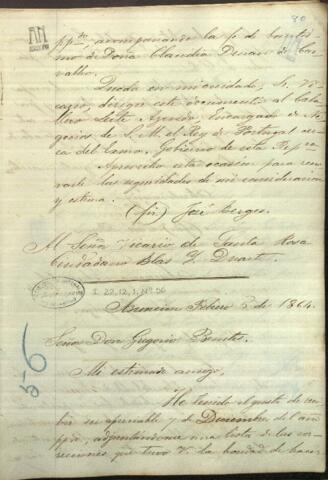 80
AN
pp.do, acompañando la fé de bautis-
mo de Doña Claudia Duarte de Car-
vallo.
Queda en mi cuidado, Sr. Vi-
cario, dirigir este documento al Caba-
llero Leite Azevedo, Encargado de Ne-
gocios de S. M. el Rey de Portugal cer-
ca del Exmo. Gobierno de esta Repca
Aprovecho esta ocasion para reno-
varle las seguridades de mi consideracion
y estima.
(fir) José Berges.
Al Señor Vicario de Santa Rosa
Ciudadano Blas Y. Duarte.
I 22,12,1 Nº 56
Asuncion Febrero 5 de 1864.
Señor Don Gregorio Benites.
Mi estimado amigo,
He tenido el gusto de reci-
bir su apreciable 7 de Diciembre del año
ppdo, adjuntándome una lista de las co-
misiones que tuvo V. la bondad de hacer